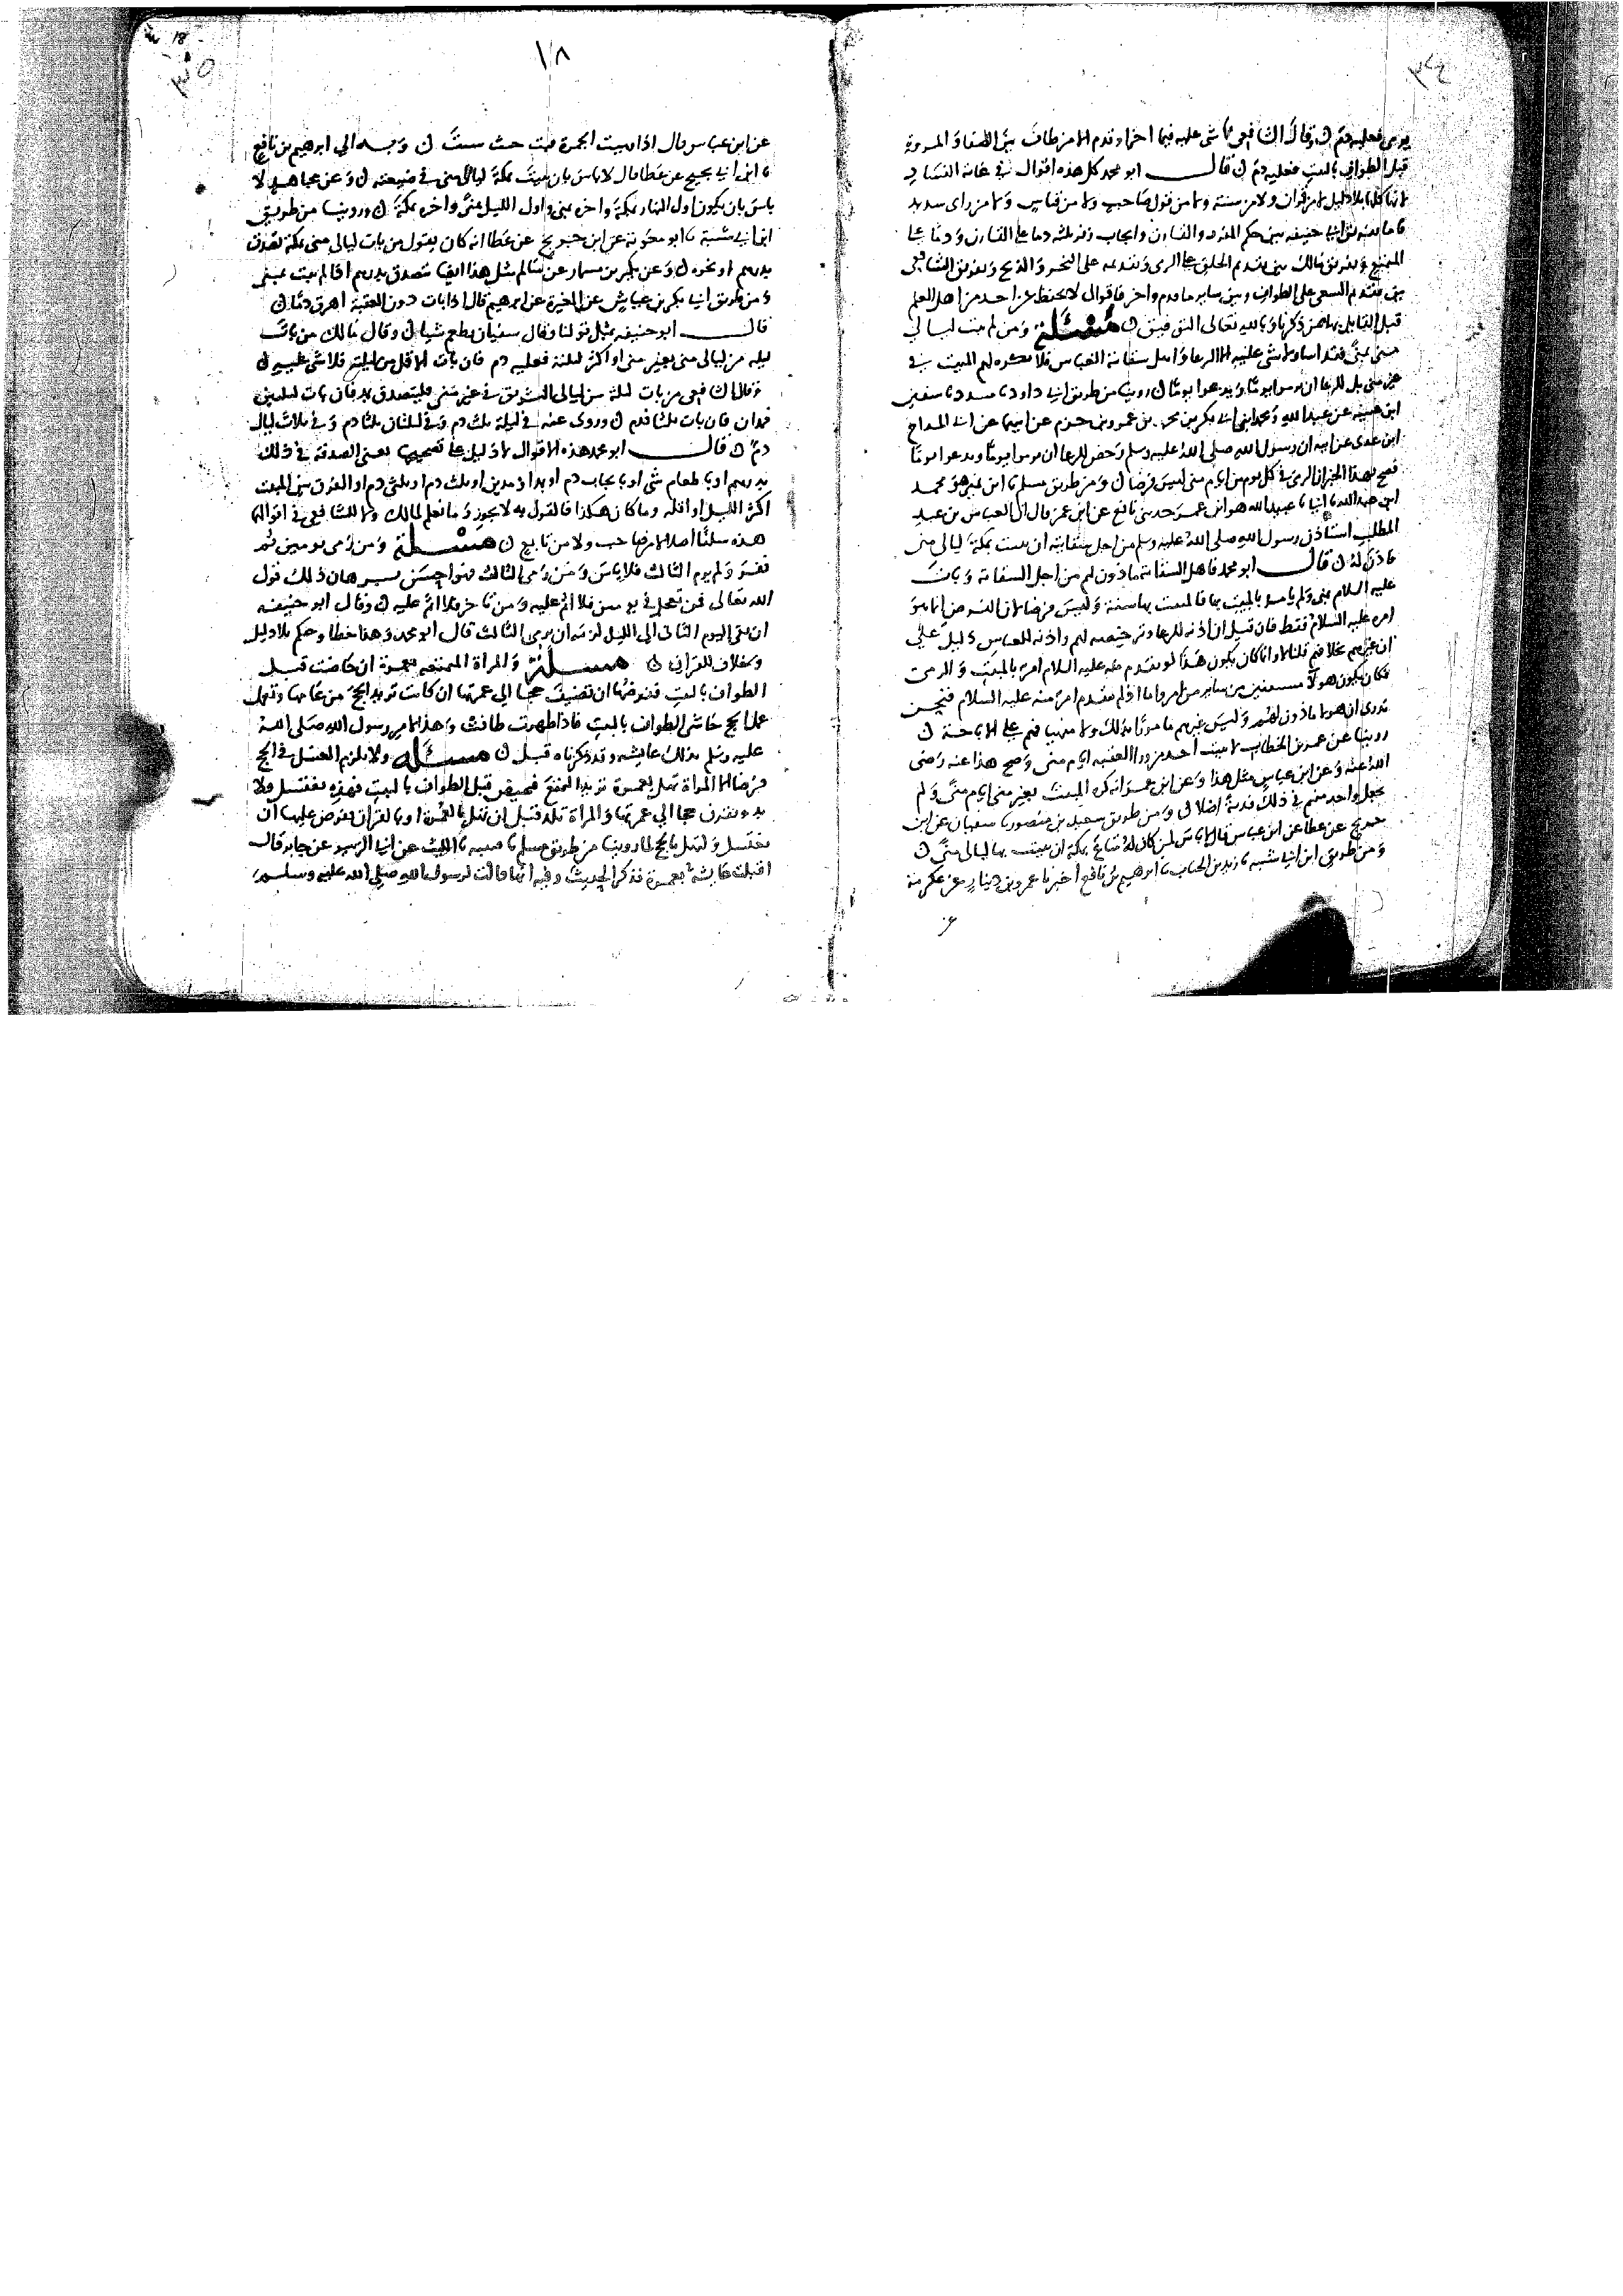 يرمى فعليه دم ن وقال الشافعى لا شى عليه فيما اخر او قدم الا من طاف بين الصفا والمروة
قبل الطواف بالبيت فعليه دم ن قال ابو محمد كل هذه اقوال فى غاية الفساد
لانها كلها بلا دليل لا من قران ولا من سنة ولا من قول صاحب ولا من قياس ولا من راى سديد
حنيفه بين حكم المفرد والقارن وايجاب دما على القارن ودما على
المتمتع وتفريق مالك بين تقديم الحلق على الرمى وتقديمه على النحر والذبح وتفريق الشافعى
بين تقديم السعى على الطواف وبين ساير ما قدم واخر فاقوال لا تحفظ عن احد من اهل العلم
قبل القايل بها من ذكرنا وبالله تعالى التوفيق ن مسئلة ومن لم يبت ليالي
منى بمنى فقد اسا ولا شى عليه الا الرعا واهل سقاية العباس فلا نكره لهم المبيت فى
غير منى بل للرعا ان يرموا يوما ويدعوا يوما ن روينا من طريق ابى داود نا مسدد نا سفين
ابن عيينه عن عبد الله ومحمد ابنى ابى بكر بن محمد بن عمرو بن حزم عن ابيهما عن ابى البداح
ابن عدى عن ابيه ان رسول الله صلى الله عليه وسلم رخص للرعا ان يرموا يوما ويدعوا يوما
فصح بهذا الخبر ان الرمى فى كل يوم من ايام منى ليس فرضا ن ومن طريق مسلم نا ابن نمير هو محمد
ابن عبد الله نا ابى نا عبيد الله هو ابن عمر حدثنى نافع عن ابن عمر قال ان العباس بن عبد
المطلب استاذن رسول الله صلى الله عليه وسلم من اجل سقايته ان يبيت بمكة ليالى منى
فاذن له ن قال ابو محمد فاهل السقاية ماذون لهم من اجل السقاية وبات
عليه السلام بمنى ولم يامر بالمبيت بها فالمبيت بها سنة وليس فرضا لان الفرض انما هو
امره عليه السلام فقط فان قيل ان اذنه للرعا وترخيصه لهم واذنه للعباس دليل على
ان غيرهم بخلافهم قلنا لا وانما كان يكون هذا لو تقدم منه عليه السلام امر بالمبيت والرمى
فكان يكون هولا مستثنين من ساير من امر واما اذ لم يتقدم امر منه عليه السلام فنحن
ندرى ان هولا ماذون لهم وليس غيرهم مامورا بذلك ولا منهيا فهم على الاباحة ن
روينا عن عمر بن الخطاب لا يبيتن احد من ورا العقبه ايام منى وصح هذا عنه رضى
الله عنه وعن ابن عباس مثل هذا وعن ابن عمر انه كره المبيت بغير منى ايام منى ولم
يجعل واحد منهم فى ذلك فدية اصلا ن ومن طريق سعيد بن منصور نا سفيان عن ابن
جريج عن عطا عن ابن عباس قال لا باس لمن كان له متاع بمكة ان يبيت بها ليالى منى ن
ومن طريق ابن ابى شيبه نا زيد بن الحباب نا ابرهيم بن نافع اخبرنا عمرو بن دينار عن عكرمة
١٨
18
عن ابن عباس قال اذا رميت الجمرة فبت حيث شيت ن وبه الى ابرهيم بن نافع
نا ابن ابى نجيح عن عطا قال لا باس بان يبيت بمكة ليالى منى فى ضيعته ن وعن مجاهد لا
باس بان يكون اول النهار بمكة واخره بمنى واول الليل بمنى واخره بمكة ن وروينا من طريق
ابن ابى شيبة نا ابو معوية عن ابن جريج عن عطا انه كان يقول من بات ليالى منى بمكة تصدق
بدرهم او نحوه ن وعن بكير بن مسمار عن سالم مثل هذا ايضا تصدق بدرهم اذا لم يبت بمنى
ومن طريق ابى بكر بن عياش عن المغيرة عن ابرهيم قال اذا بات دون العقبة اهرق دما ن
قال ابو حنيفه بمثل قولنا وقال سفيان يطعم شيا ن وقال مالك من بات
ليله من ليالى منى بغير منى او اكثر ليلته فعليه دم فان بات الاقل من ليلته فلا شى عليه ن
وقال الشافعى من بات ليلة من ليالى التشريق فى غير منى فليتصدق بمد فان بات ليلتين
فمدان فان بات ثلثا فدم ن وروى عنه فى ليلة ثلث دم وفى ليلتان ثلثا دم وفى ثلاث ليال
دم ن قال ابو محمد هذه الاقوال لا دليل على تصحيحها يعنى الصدقه فى ذلك
بدرهم او باطعام شى او بايجاب دم او بمد او مدين او ثلث دم او ثلثى دم او الفرق بين المبيت
اكثر الليل او اقله وما كان هكذا فالقول به لا يجوز وما نعلم لمالك ولا للشافعى فى اقوالهما
هذه سلفا اصلا لا من صاحب ولا من تابع ن مسئلة ومن رمى يومين ثم
نفر ولم يرم الثالث فلا باس ومن رمى الثالث فهو احسن برهان ذلك قول
الله تعالى فمن تعجل فى يومين فلا اثم عليه ومن تاخر فلا اثم عليه ن وقال ابو حنيفه
ان بقى اليوم الثانى الى الليل لزمه ان يرمى الثالث قال ابو محمد وهذا خطا وحكم بلا دليل
وبخلاف القران ن مسئلة والمراة المتمتعه بعمرة ان حاضت قبل
الطواف بالبيت ففرضها ان تضيف حجا الى عمرتها ان كانت تريد الحج من عامها وتعمل
عمل الحج حاشى الطواف بالبيت فاذا طهرت طافت وهذا امر رسول الله صلى الله
عليه وسلم بذلك عايشه وقد ذكرناه قبل ن مسئله ولا يلزم الغسل فى الحج
فرضا الا المراة تهل بعمرة تريد التمتع فتحيض قبل الطواف بالبيت فهذه تغتسل ولا
بد وتقرن حجا الى عمرتها والمراة تلد قبل ان تهل بالعمرة او بالقران ففرض عليها ان
تغتسل وتهل بالحج لما روينا من طريق مسلم نا قتيبه نا الليث عن ابى الزبير عن جابر قال
اقبلت عايشة بعمرة فذكر الحديث وفيه انها قالت لرسول الله صلى الله عليه وسلم